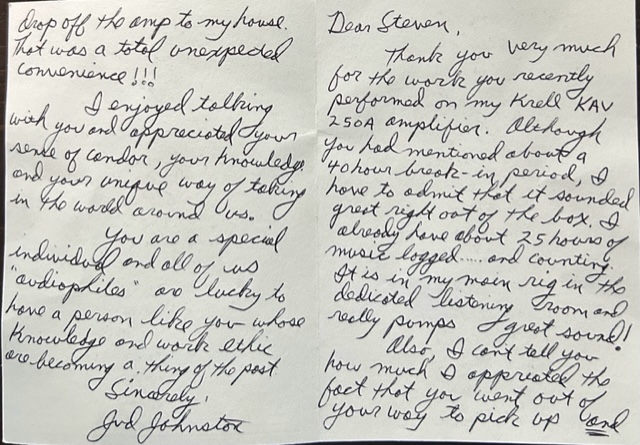 Dear Steven,
Thank you very much
for the work you recently
performed on my Krell KAV
250A amplifier. Although
you had mentioned about a
40 hour break-in period, I
have to admit that it sounded
great right out of the box. I
already have about 25 hours of
music logged.....and counting.
It is in my main rig in the
dedicated listening room and
really pumps great sound!
Also, I can't tell you
how much I appreciated the
fact that you went out of
your way to pick up and
drop off the amp to my house.
That was a total unexpected
convenience!!!
I enjoyed talking
with you and appreciated your
sense of candor, your knowledge
and your unique way of taking
in the world around us.
You are a special
individual and all of us
"audiophiles" are lucky to
have a person like you whose
knowledge and work ethic
are becoming a thing of the past.
Sincerely,
Jud Johnston